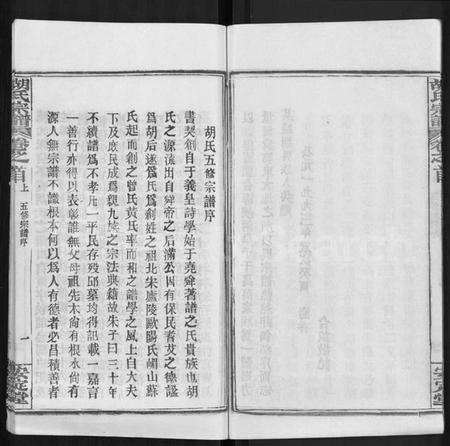 胡氏宗譜卷之首
胡氏五修宗譜序
書契創自于義皇詩學始于堯舜著譜之氏貴族也胡
氏之源流出自舜帝之后滿公因有保民耆艾之德諡
為胡后遂爲氏爲創姓之祖北宋廬陵歐陽氏嵋山蘇
氏起而創之曾氏黃氏率而和之譜學之風上自大夫
下及庶民成爲親九族之宗法典籍故朱子曰三十年
不續譜爲不孝凡一平民存殁邱墓均得記載一嘉言
一善行亦得以表彰誰無父母祖先木尙有根水尙有
源人無宗譜不識根本何以爲人有德者必昌積善者
胡氏宗譜 卷之首 上 五修宗譜序 一 安定堂